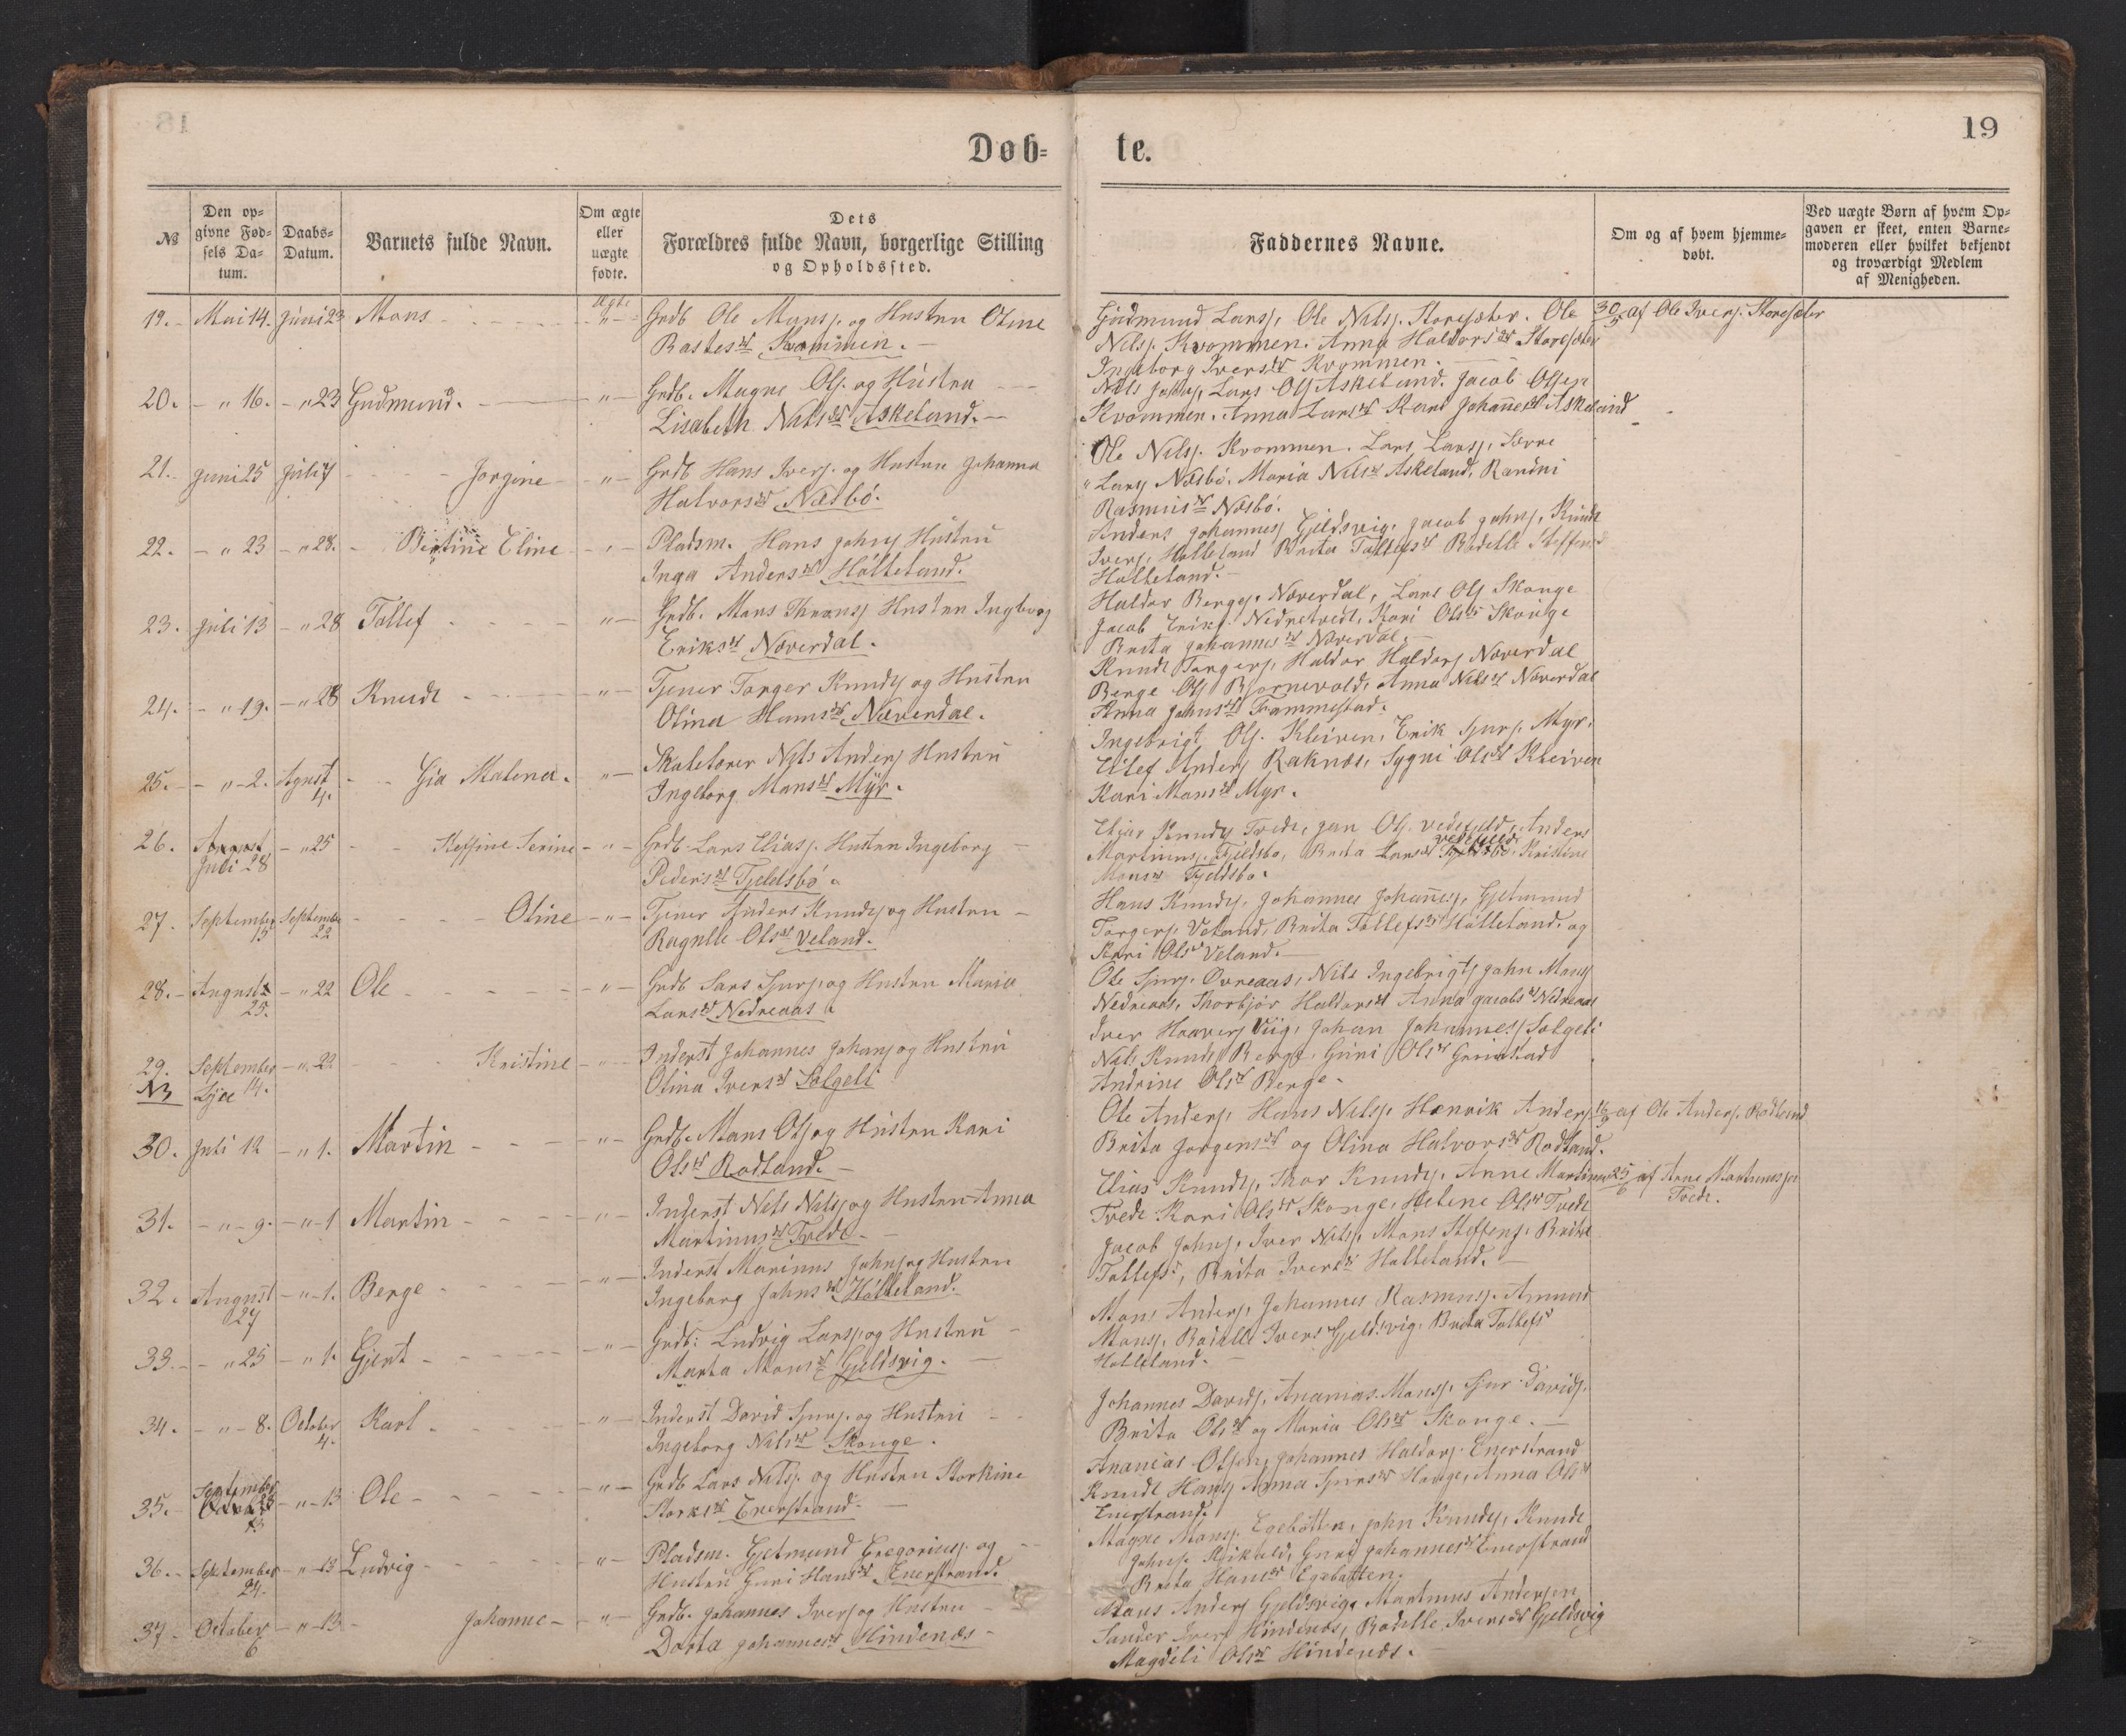 18
Døb-
te.
19
№
Den opgivne Fødsels Datum.
Daabs-Datum.
Barnets fulde Navn.
Om ægte eller uægte fødte.
Dets Forældres fulde Navn, borgerlige Stilling og Opholdssted.
Faddernes Navne.
Om og af hvem hjemmedøbt.
Ved uægte Børn af hvem Opgaven er skeet, enten Barnemoderen eller hvilket bekjendt og troværdigt Medlem af Menigheden.
19. Mai 14. Juni 23 Mons ægte Grdb Ole Monsj. og Hustru Oline
Kvammen.
Gudmund Larsj. Ole Nilsj. Storesæter. Ole 30/5 af Ole Iversj. Storesæter
Nilsj. Kvommen. Anna Haldorsdt Storesæter
Ingeborg Iversdt Kvommen.
20. " 16. " 23 Gudmund. " Grdb. Magne Olsj. og Hustru
Lisabeth Nilsdt Askeland.
Nils Johnsj, Lars Olsj Askeland. Jacob Olsen
Kvommen. Anna Larsdt Kari Johannesdt Askeland
21. Juni 25 Juli 7 Jorgine " Grdb Hans Iversj. og Hustru Johanna
Halvorsdt Næsbö.
Ole Nilsj. Kvommen. Lars Larsj.
Larsj Næsbö. Maria Nilsdt Askeland,
Rasmusdt Næsbö.
22. " 23 " 28. Eline " Pladsm. Hans Johnsj Hustru
Inga Andersdt Hölleland.
Anders Johannesj Gjeldsvig, Jacob Johnsj, Knud
Iversj. Hölleland Brita Tollefsdt
Hölleland.
23. Juli 13 " 28 Tollef " Grdb. Mons Hustru Ingborg
Eriksdt Nøverdal.
Haldor Bergesj. Nøverdal, Lars Olsj Skouge
Jacob Eriksj. Nedretvedt, Kari Olsdt Skouge
Brita Johannesdt Nøverdal.
24. " 19. " 28 Knudt " Tjener Torger Knudsj og Hustru
Olina Hansdt Nøverdal.
Knudt Torgersj, Haldor Haldorsj Nøverdal
Berge Olsj Bjornevold, Anna Nilsdt Nøverdal
Anna Johnsdt Trammestad.
25. " 2. Agust 4. Gia Malena. " Skolelærer Nils Andersj Hustru
Ingeborg Monsdt Myr.
Ingebrigt Olsj. Kleiven, Erik Sjursj. Myr,
Andersj Raknæs, Sygni Olsdt Kleiven
Kari Monsdt Myr.
26. Juli 28 " 25 Steffine Serine " Grdb. Lars Eliasj. Hustru Ingeborg
Pedersdt Fjeldsbö.
Elias Knudsj Tvede, Jan Olsj. Anders
Martinusj. Fjeldsbo, Brita Larsdt Kristine
Monsdt Fjeldsbo.
27. September 15 September 22 Oline " Tjener Anders Knudsj og Hustru
Olsdt Veland.
Hans Knudsj, Johannes Johannesj, Gjetmund
Torgersj. Veland, Brita Tollefsdt Hölleland, og
Kari Olsdt Veland.
28. August 25. " 22 Ole " Grdb Lars Sjursj og Hustru Marie
Larsdt Nedreaas
Ole Sjursj. Ovreaas, Nils Ingebrigtsj John Monsj
Nedreaas, Thorbjör Haldorsdt Anna Jacobsdt Nedreaas
29. September 14. " 22 Kristine " Inderst Johannes Johansj og Hustru
Olina Iversdt Solgeli
Iver Haaversj Viig, Johan Johannesj Solgeli
Nils Knudsj Berge, Guri Olsdt Grimstad
Andrine Olsdt Berge.
30. Juli 12 " 1. Martin " Grdb. Mons Olsj og Hustru Kari
Olsdt Rodland.
Ole Andersj, Hans Nilsj, Henrik Andersj af Ole Andersj. Rodland
Brita Jorgensdt og Olina Halvorsdt Rodland.
31. " 9. " 1 Martin " Inderst Nils Nilsj og Hustru Anna
Martinusdt Tvede.
Elias Knudsj, Thor Knudsj, Arne Martinus 25/6 af Arne Martinussen
Tvede.
Tvede Kari Olsdt Skouge, Helene Olsdt Tvede
32. August 27 " 1. Berge " Inderst Marinus Johnsj og Hustru
Ingeborg Johnsdt Hölleland.
Jacob Johnsj, Iver Nilsj, Mons Steffensj. Brita
Tollefs, Brita Iversdt Hölleland.
33. " 25 " 1. Gjert " Grdb. Ludvig Larsj og Hustru
Marta Monsdt Gjeldsvig.
Mons Andersj, Johannes Rasmusj. Amund
Monsj, Iversdt Gjeldsvig. Brita Tollefs
Hölleland.
34. " 8. October 4. Karl " Inderst David Sjursj. og Hustru
Ingeborg Nilsdt Skouge.
Johannes Davidsj, Ananias Monsj, Sjur Davidsj.
Brita Olsdt og Maria Olsdt Skouge.
35. September " 13 Ole " Grdb Lars Nilsj. og Hustru Storkine
Storksdt Enerstrand.
Ananias Olsen, Johannes Haldorsj. Enerstrand
Knudt Hansj Anna Sjursdt Houge, Anna Olsdt
Enerstrand.
36. September 24. " 13 Ludvig " Pladsm. Gjetmund Gregoriusj. og
Hustru Guri Hansdt Enerstrand.
Magne Monsj. Egebötten, John Knudsj, Knudt
Johnsj. Guri Johannesdt Enerstrand
Brita Hansdt Egebotten.
37. October 6 " 13 Johanne " Grdb. Johannes Iversj og Hustru
Dorta Johannesdt Hindenæs
Mons Andersj Gjeldsvig, Martinus Andersen
Sander Iversj Hindenæs, Bodelle Iversdt Gjeldsvig
Magdeli Olsdt Hindenæs.